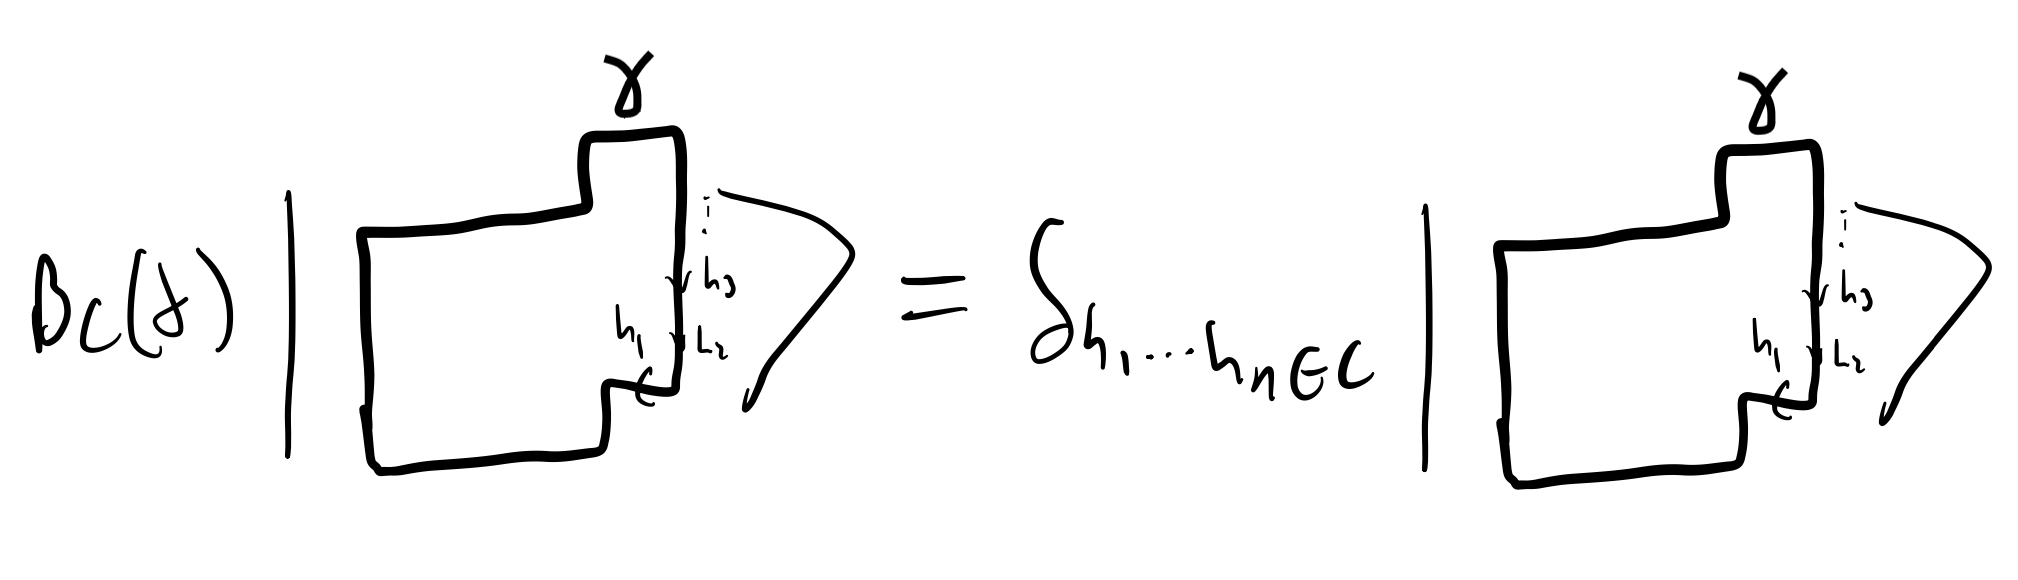 γ γ
B_C(γ) | h_1 h_2 h_3 ⋮ ⟩ = δ_{h_1...h_n∈C} | h_1 h_2 h_3 ⋮ ⟩